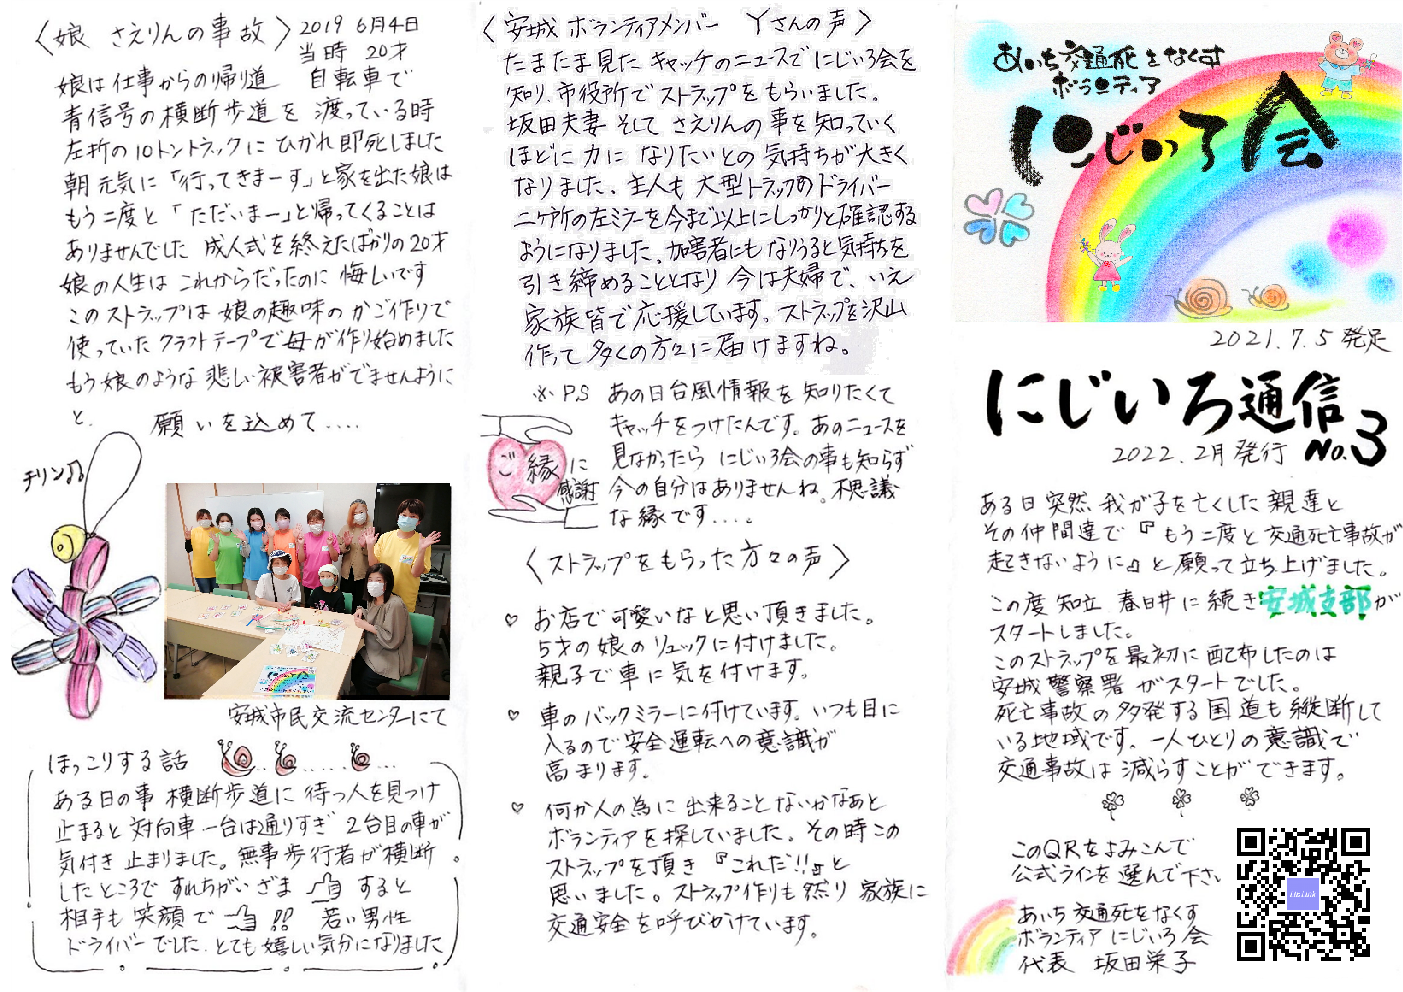 〈娘 さえりんの事故〉2019 6月4日
当時 20才
娘は仕事からの帰道 自転車で
青信号の横断歩道を 渡っている時
左折の10トントラックに ひかれ即死しました
朝元気に「行ってきまーす」と家を出た娘は
もう二度と「ただいまー」と帰ってくることは
ありませんでした 成人式を終えたばかりの20才
娘の人生は これからだったのに 悔しいです
このストラップは 娘の趣味の かご作りで
使っていた クラフトテープで母が作り始めました
もう娘のような 悲しい被害者がでませんように
と. 願いを込めて....
チリン♫
安城市民交流センターにて
ほっこりする話
ある日の事 横断歩道に 待つ人を見つけ
止まると 対向車 一台は通りすぎ 2台目の車が
気付き 止まりました。無事歩行者が横断
したところで すれちがいざま 👍 すると
相手も 笑顔で 👍 !! 若い男性
ドライバーでした. とても嬉しい気分になりました
〈安城 ボランティアメンバー Yさんの声〉
たまたま見た キャッチのニュースで にじいろ会を
知り、市役所で ストラップを もらいました。
坂田夫妻 そして さえりんの 事を知っていく
ほどに 力に なりたいとの 気持ちが大きく
なりました、主人も 大型トラックのドライバー
二ヶ所の左ミラーを今まで以上にしっかりと確認する
ようになりました、加害者にも なりうると気持ちを
引き締めることとなり 今は夫婦で、いえ
家族皆で応援しています。ストラップを沢山
作って 多くの方々に 届けますね。
※ P.S あの日台風情報を 知りたくて
キャッチをつけたんです。あのニュースを
見なかったら にじいろ会の事も知らず
今の自分は ありませんね。不思議
な縁です....。
ご縁に
感謝
〈ストラップをもらった方々の声〉
♡ お店で可愛いなと思い頂きました。
5才の娘の リュックに付けました。
親子で車に 気を付けます。
♡ 車の バックミラーに付けています。いつも目に
入るので安全運転への意識が
高まります.
♡ 何か人の為に 出来ること ないかなあと
ボランティアを探していました。その時この
ストラップを頂き 『これだ!!』と
思いました。ストラップ作りも 然り 家族に
交通安全を呼びかけています。
あいち交通死をなくす
ボランティア
にじいろ会
2021.7.5 発足
にじいろ通信 No.3
2022.2月発行
ある日 突然 我が子を亡くした 親達と
その仲間達で 『もう二度と 交通死亡事故が
起きないように』と願って立ち上げました。
この度 知立 春日井に続き 安城支部が
スタートしました。
このストラップを最初に 配布したのは
安城警察署 がスタートでした。
死亡事故の多発する国道も縦断して
いる地域です. 一人ひとりの意識で
交通事故は 減らすことができます。
このQRをよみこんで
公式ラインを選んで下さい
あいち交通死をなくす
ボランティア にじいろ会
代表 坂田栄子